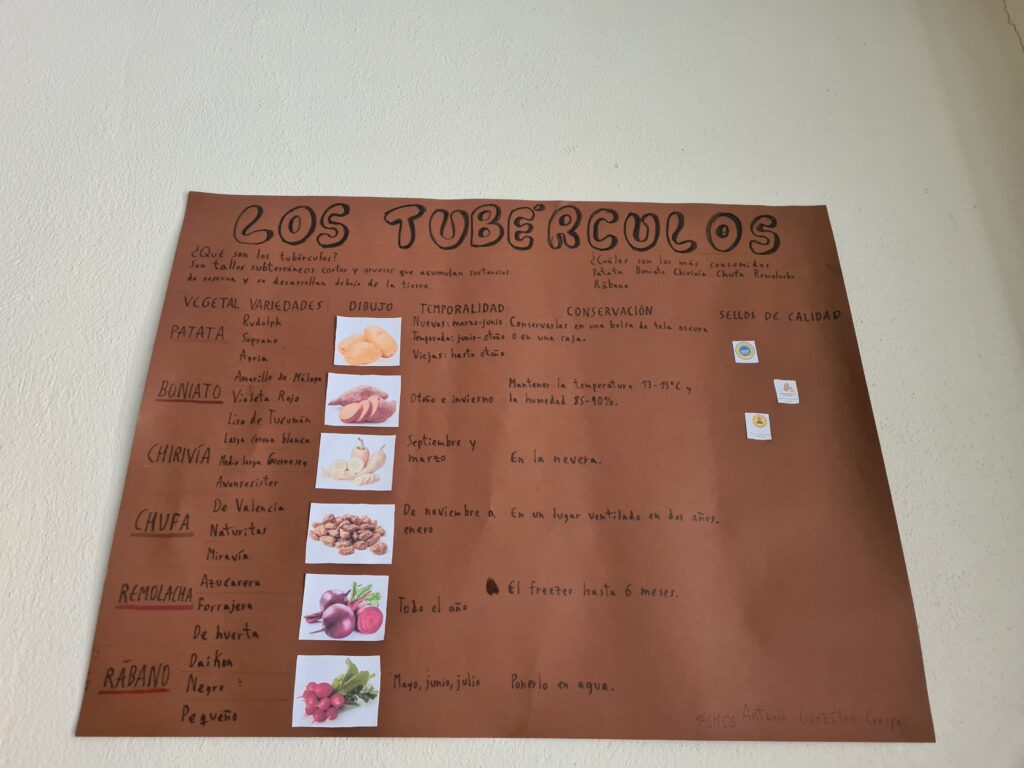 LOS TUBÉRCULOS
¿Qué son los tubérculos?
Son tallos subterráneos cortos y gruesos que acumulan sustancias
de reserva y se desarrollan debajo de la tierra.
¿Cuáles son los más consumidos
Patata Boniato Chirivía Chufa Remolacha
Rábano
VEGETAL VARIEDADES DIBUJO TEMPORALIDAD CONSERVACIÓN SELLOS DE CALIDAD
PATATA
Rudolph
Soprano
Agria
Nuevas: marzo-junio
Temporada: junio-otoño
Viejas: hasta otoño
Conservarlas en una bolsa de tela oscura
O en una caja.
BONIATO
Amarillo de Málaga
Violeta Rojo
Liso de Tucumán
Otoño e invierno
Mantener la temperatura 13-15°C y
la humedad 85-90%.
CHIRIVÍA
Larga corona blanca
Medio larga Guernesey
Avonresister
Septiembre y
marzo
En la nevera.
CHUFA
De Valencia
Naturitas
Miravía
De noviembre a
enero
En un lugar ventilado en dos años.
REMOLACHA
Azucarera
Forrajera
De huerta
Todo el año
El freezer hasta 6 meses.
RÁBANO
Daikon
Negro
Pequeño
Mayo, junio, julio
Ponerlo en agua.
Antonio González Crespo